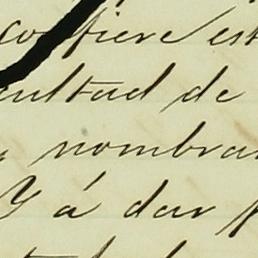 confiere est
cultad de
nombrar
Y á dar p